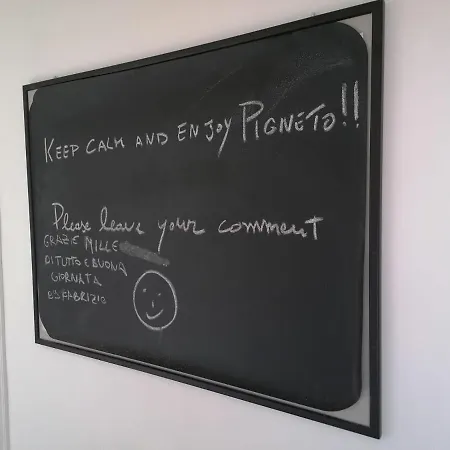 KEEP CALM AND ENJOY PIGNETO!!
Please leave your comment
GRAZIE MILLE
DI TUTTO E BUONA
GIORNATA